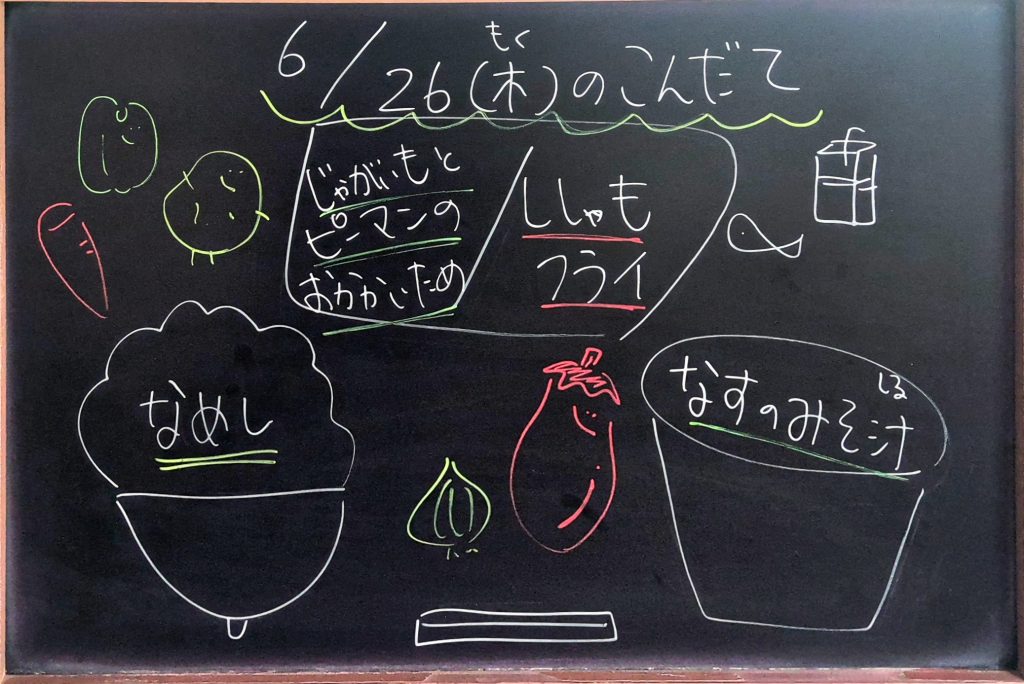 6/26(木)のこんだて
もく
じゃがいもと
ピーマンの
おかかいため
ししゃも
フライ
なめし
なすのみそ汁
しる